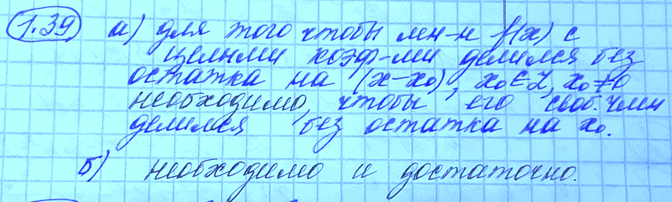 1.39 а) для того чтобы мн-н f(x) с
целыми коэф-ми делился без
остатка на (x-x₀), x₀∈Z, x₀≠0
необходимо, чтобы его своб. член
делился без остатка на x₀.
б) необходимо и достаточно.